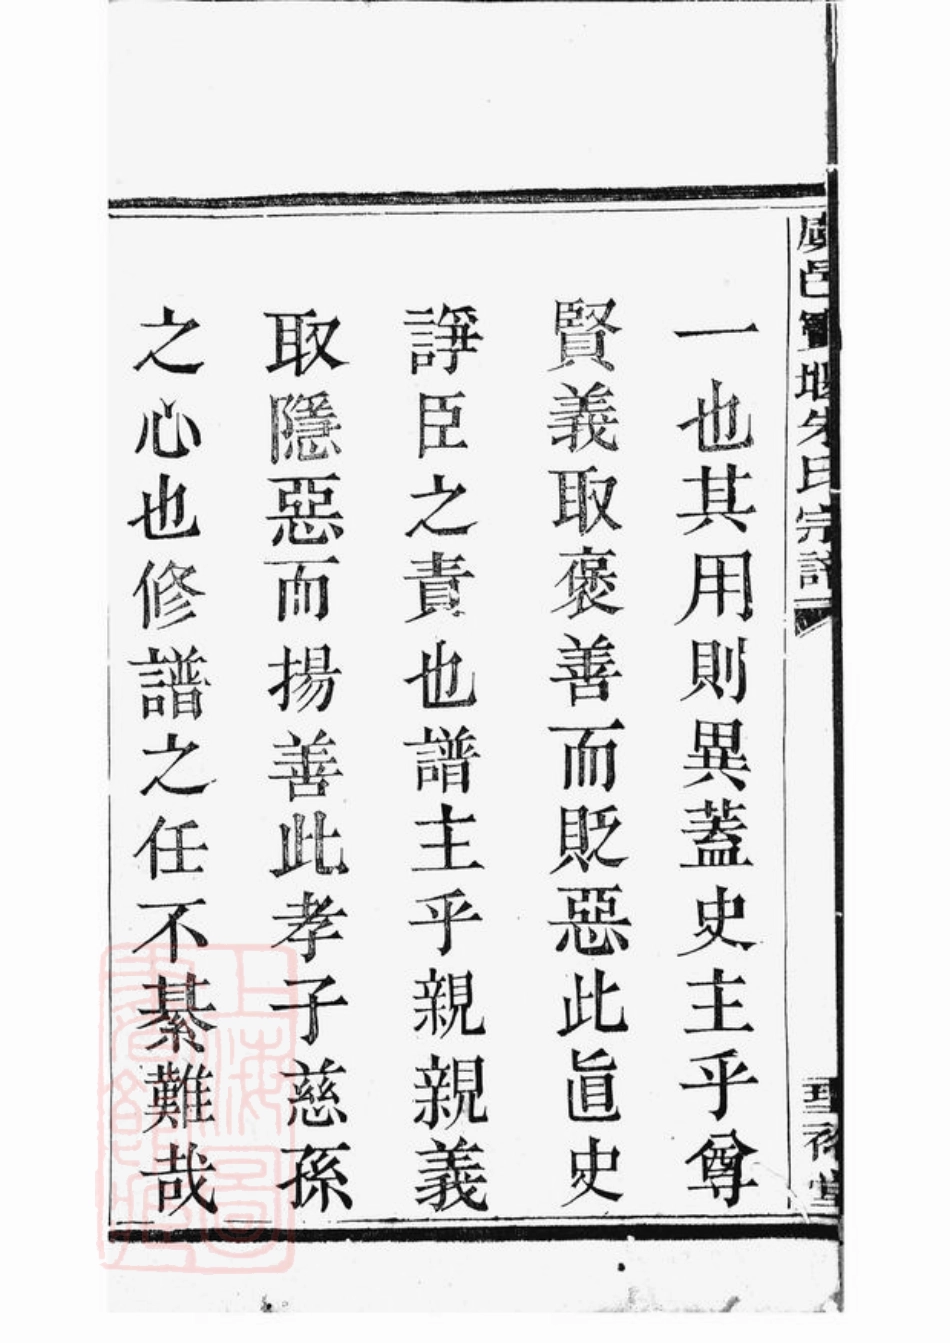 一也其用則異蓋史主乎尊
賢義取褒善而貶惡此眞史
諍臣之責也譜主乎親親義
取隱惡而揚善此孝子慈孫
之心也修譜之任不綦難哉
邑寶堰朱氏宗譜
上海圖書館藏